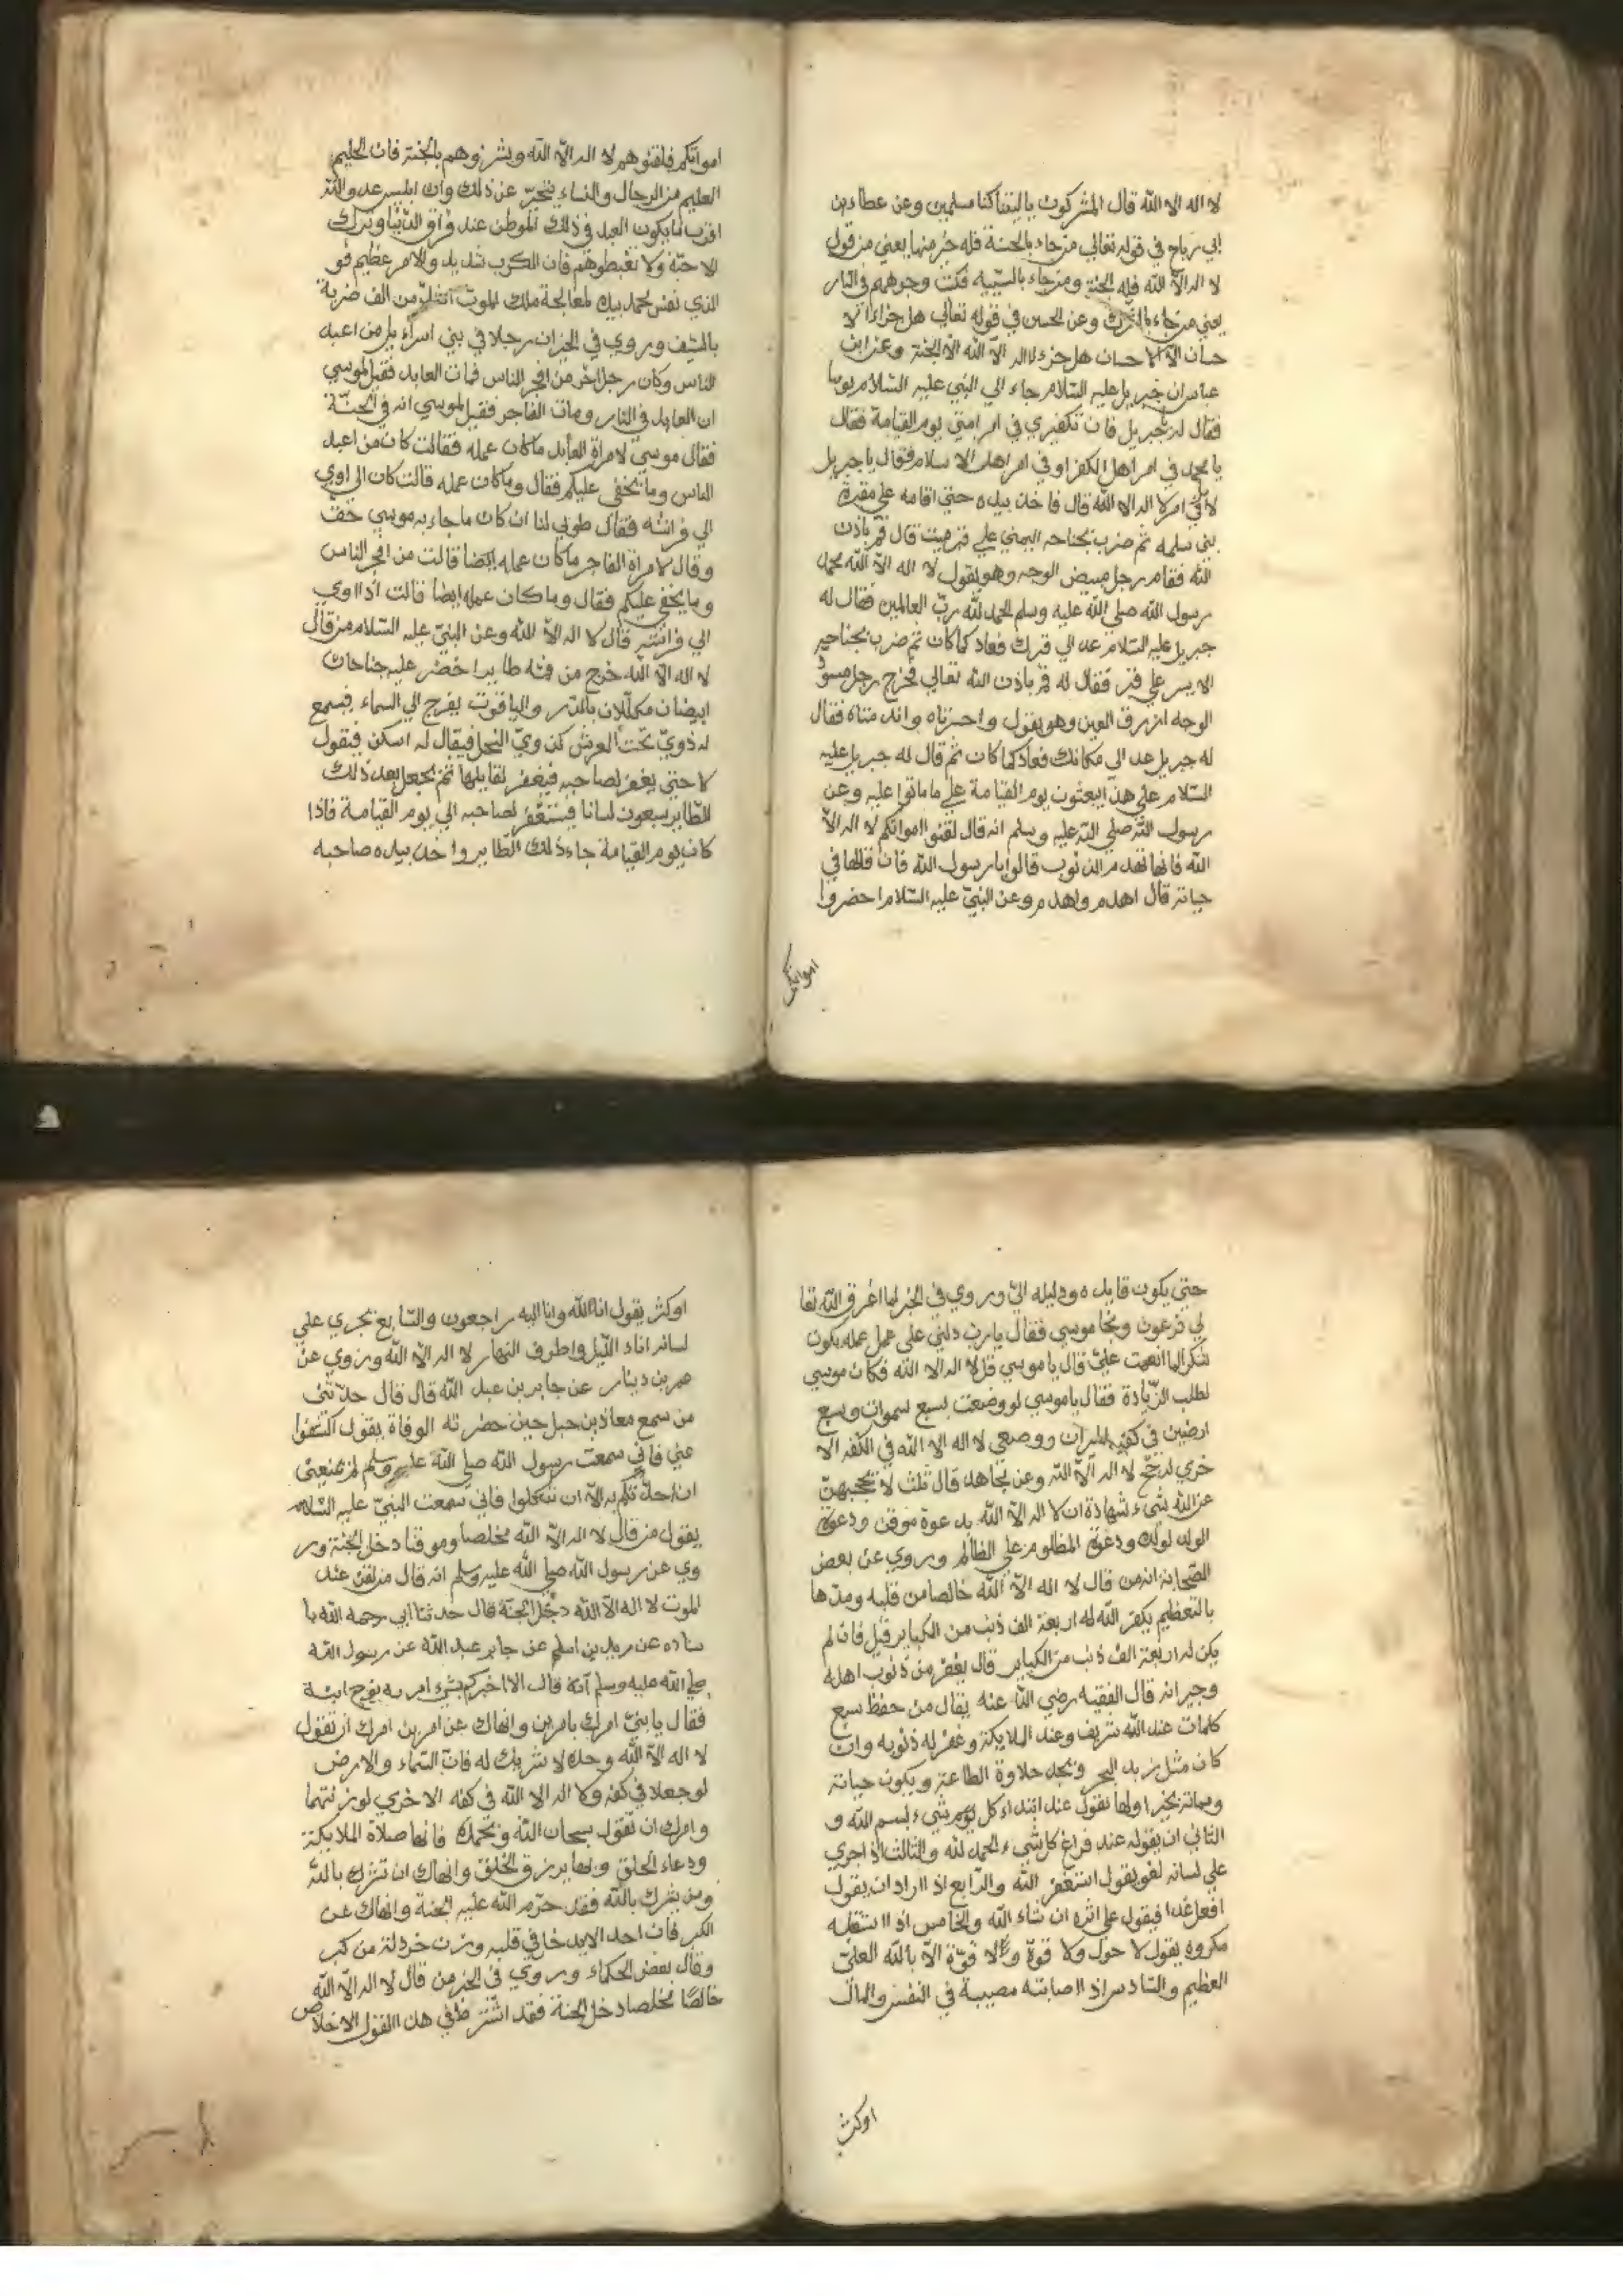 لا اله الا الله قال المشركون ياليتنا كنا مسلمين وعن عطاء بن
ابي رباح في قوله تعالي من جاء بالحسنة فله خير منها يعني من قول
لا اله الاّ الله فله الجنة ومن جاء بالسّيية فكبت وجوههم في النار
يعني من جاء بالشرك وعن الحسن في قوله تعالي هل جزاء الا
حسان الاّ الاحسان هل جزء لا اله الاّ الله الاّ الجنة وعن ابن
عباس ان جبريل عليه السّلام جاء الي النبي عليه السّلام يوما
فقال له جبريل فان تكفيري في امر امتي يوم القيامة فقال
يا محمد في امر اهل الكفر او في امر اهل الاسلام فقال يا جبريل
لا في امر لا اله الا الله قال فاخذ بيده حتي اقامه علي مقبرة
بني سلمه ثم ضرب بجناحه اليمني علي قبر ميت قال قم باذن
الله فقام رجل مبيض الوجه وهو يقول لا اله الاّ الله محمد
رسول الله صلي الله عليه وسلم الحمد لله ربّ العالمين فقال له
جبريل عليه السّلام عد الي قبرك فعاد كما كان ثم ضرب بجناحه
الايسر علي قبر فقال له قم باذن الله تعالي فخرج رجل مسودّ
الوجه ازرق العين وهو يقول واحسرتاه واندمتاه فقال
له جبريل عد الي مكانك فعاد كما كان ثم قال له جبريل عليه
السّلام علي هذا يبعثون يوم القيامة علي ما ماتوا عليه وعن
رسول الله صلي الله عليه وسلم انه قال لقنوا امواتكم لا اله الاّ
الله فانها تهدم الذنوب قالوا يا رسول الله فان قالها في
حياته قال اهدم واهدم وعن النبيّ عليه السّلام احضروا
امواتكم
امواتكم فلقنوهم لا اله الاّ الله وبشروهم بالجنة فان الحليم
العليم من الرجال والنساء يتحيّر عن ذلك وان ابليس عدو الله
اقرب ما يكون العبد في ذلك الموطن عند فراق الدّنيا وترك
الاحبّة ولا تغبطوهم فان الكرب شديد والامر عظيم فو
الذي نفس محمد بيده لمعالجة ملك الموت اشدّ من الف ضربة
بالسّيف وروي في الخبر ان رجلا في بني اسرآءيل من اعبد
الناس وكان رجل اخر من افجر الناس فمات العابد فقيل لموسي
ان العابد في النار ومات الفاجر فقيل لموسي انه في الجنّة
فقال موسيّ لامراة العابد ما كان عمله فقالت كان من اعبد
الناس وما يخفي عليكم فقال وما كان عمله قالت كان الي اوي
الي فراشه فقال طوبي لنا ان كان ما جاء به موسي حق
وقال لامراة الفاجر ما كان عمله ايضا قالت من افجر الناس
وما يخفي عليكم فقال وما كان عمله ايضا قالت اذا اوي
الي فراشه قال لا اله الاّ الله وعن النبيّ عليه السّلام من قال
لا اله الاّ الله خرج من فمه طايرا خضر عليه جناحان
ابيضان مكلّلان بالدّر والياقوت يفرج الي السماء فيسمع
له ذويّ تحت العرش كدويّ النحل فيقال له اسكن فيقول
لا حتي يغفر لصاحبه فيغفر لقايلها ثم يجعل بعد ذلك
للطّاير سبعون لسانا فيستغفر لصاحبه الي يوم القيامة فاذا
كان يوم القيامة جاء ذلك الطّاير واخذ بيده صاحبه
حتي يكون قايده ودليله الي وروي في الخبر لما اغرق الله تعا
لي فرعون ونجا موسي فقال يا ربّ دلني علي عمل عمله يكون
شكرا لما انعمت عليّ قال يا موسي قل لا اله الا الله فكان موسي
لطلب الزّيادة فقال يا موسي لو وضعت بسبع سموات وسبع
ارضين في كفة الميزان ووضعي لا اله الا الله في الكفه الا
خري لرجّح لا اله الاّ الله وعن مجاهد قال ثلث لا يحجبهنّ
عن الله شيء شهادة ان لا اله الاّ الله بدعوة موقن ودعوة
الوالد لولده ودعوة المظلوم علي الظالم وروي عن بعض
الصّحابة انه من قال لا اله الاّ الله خالصا من قلبه ومدّها
بالتعظيم يكفر الله له اربعة الف ذنب من الكباير قيل فان لم
يكن له اربعة الف ذنب من الكباير قال يغفر من ذنوب اهله
وجيرانه قال الفقيه رضي الله عنه يقال من حفظ سبع
كلمات عند الله شريف وعند الملايكة وغفر له ذنوبه وان
كان مثل زبد البحر ويجد حلاوة الطاعة ويكون حياته
ومماته بخير اولها يقول عند ابتداء كل يوم شيء بسم الله و
الثاني ان يقوله عند فراغ كل شيء الحمد لله والثالث اذا جري
علي لسانه لغو يقول استغفر الله والرّابع اذا اراد ان يقول
افعل غدا فيقول علي اثره ان شاء الله والخامس اذا استقبله
مكروه يقول لا حول ولا قوة ولا قوّة الاّ بالله العليّ
العظيم والسّادس اذا اصابته مصيبة في النفس والمال
اوكثر
اوكثر يقول انا لله وانا اليه راجعون والسّابع تجري علي
لسانه اناء اللّيل واطرف النهار لا اله الاّ الله وروي عن
عمر بن دينار عن جابر بن عبد الله قال قال حدّثني
من سمع معاذ بن جبل حين حضرته الوفاة يقول اكشفوا
عني فاني سمعت رسول الله صلي الله عليه وسلم لم يمنعني
ان احدّثكم به الاّ ان تتكلوا فاني سمعت النبيّ عليه السّلام
يقول من قال لا اله الاّ الله مخلصا وموقنا دخل الجنّة ور
وي عن رسول الله صلي الله عليه وسلم انه قال من لقن عند
الموت لا اله الاّ الله دخل الجنة قال حدثنا ابي رحمه الله با
سناده عن زيد بن اسلم عن جابر عبد الله عن رسول الله
صلي الله عليه وسلم انه قال الا اخبركم بشيء امر به نوح ابنه
فقال يا بنيّ امرك بامرين وانهاك عن امرين امرك ان تقول
لا اله الاّ الله وحده لا شريك له فان السّماء والارض
لو جعلا في كفه ولا اله الا الله في كفه الاخري لوزنتهما
وامرك ان تقول سبحان الله وبحمده فانها صلاة الملايكة
ودعاء الخلق وبها يرزق الخلق وانهاك ان تشرك بالله
ومن يشرك بالله فقد حرّم الله عليه الجنة وانهاك عن
الكبر فان احد الايدخل في قلبه وزن خردلة من كبر
وقال بعض الحكماء وروي في الخبر من قال لا اله الاّ الله
خالصًا مخلصا دخل الجنة فقد اشترط في هذا القول الاخلاص